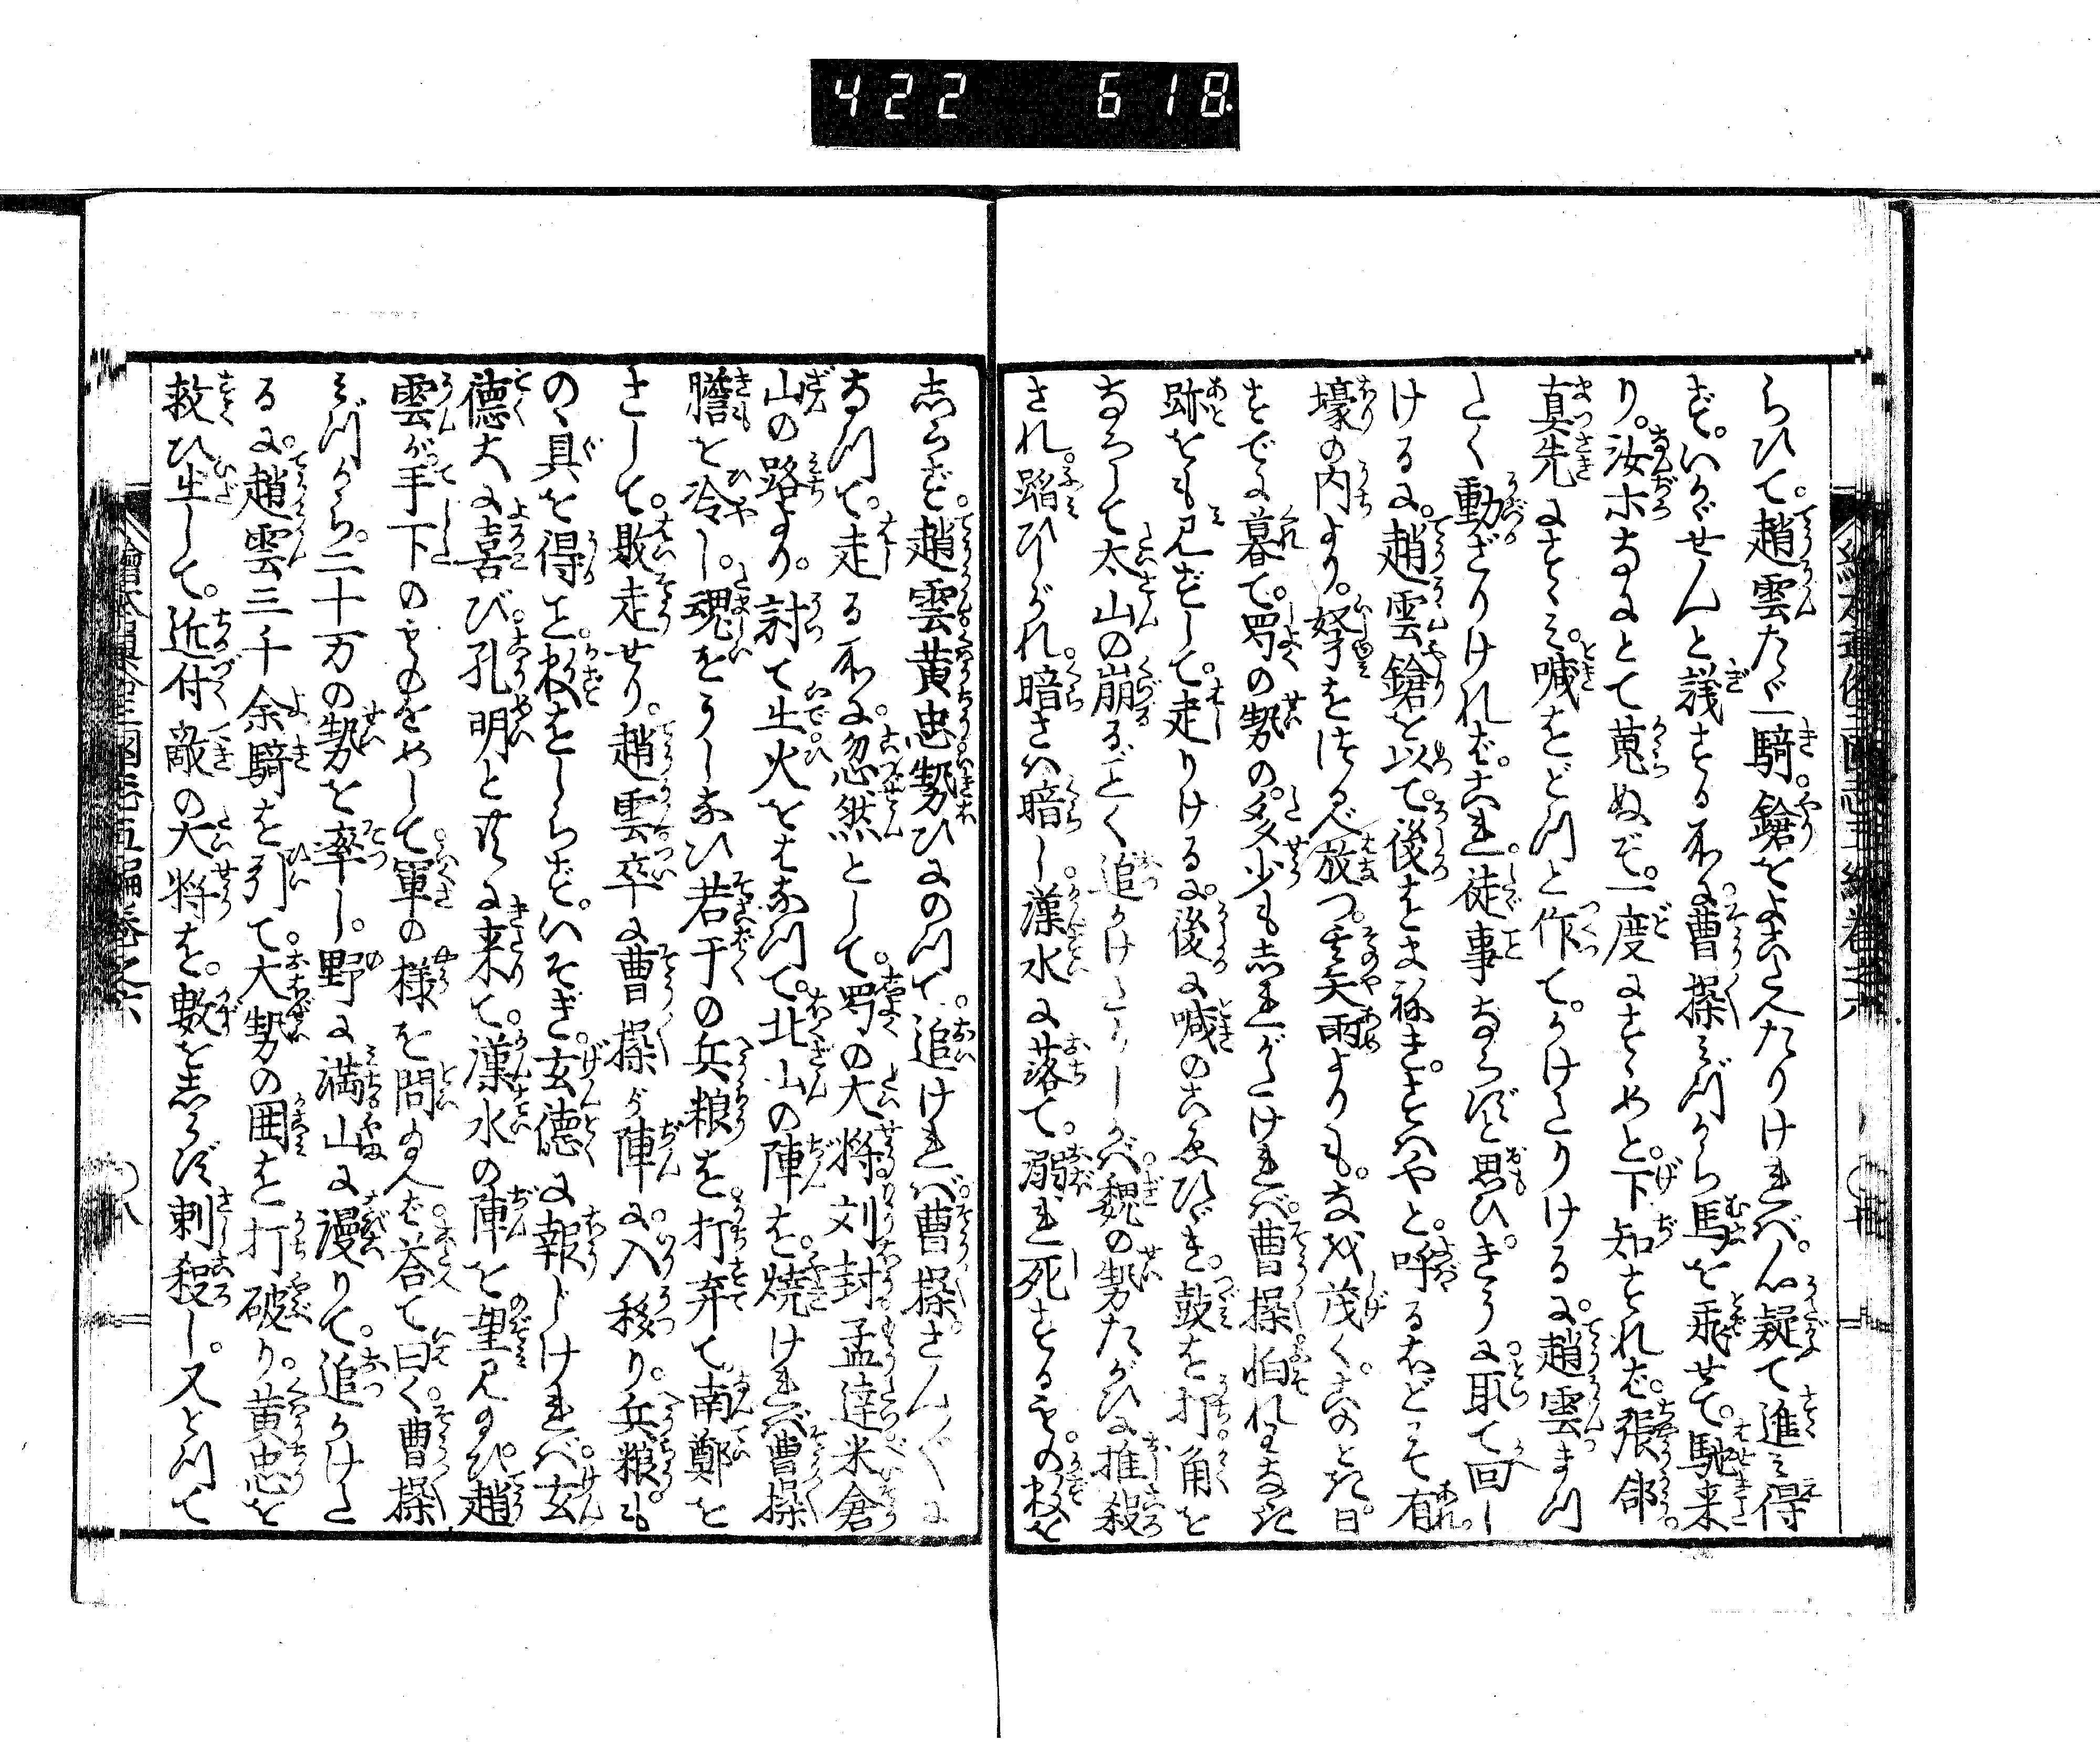 422 618
らひて。趙雲たゞ一騎。鎗をよこたへたりければ。心疑て進み得
ず。いかゞせんと議する所に。曹操みづから馬を乗せて。馳来
り。汝ホなにとて蒐ぬぞ。一度にすゝめと。下知をすれば。張郃
真先にすゝみ。喊をどつと作て。かけたりける に。趙雲まつ
たく動ざりければ。これ徒事ならずと思ひ。きうに取て回し
けるに。趙雲鎗を以て。後をまねき。すはやと。呼るほどこそ有
壕の内より。弩をつるべ放つ。其矢雨よりも。なほ茂く。このとき。日
すでに暮て。蜀の勢の。多少も志れがたければ。曹操怕れまどひ
跡をも見ずして。走りける に。後に喊のこゑひゞき。鼓を打。角を
ならして太山の崩るごとく追かけたりしかば。魏の勢たがひに推殺
され。踏ひしがれ。暗さは暗し。漢水に落て。溺れ死するもの。数を
志らず。趙雲黄忠勢ひにのつて。追ければ。曹操さんざんに
なつて。走る所に。忽然として。蜀の大将刘封孟達米倉
山の路より。討て出火をはなつて。北山の陣を。焼ければ曹操
膽を冷し。魂をうしなひ若干の兵粮を。打弃て。南鄭を
さして。敗走せり。趙雲卒に曹操が陣に。入移り。兵粮。も
のゝ具を得こと。数をしらず。いそぎ。玄徳に報じければ。玄
徳大に喜び。孔明と共に来て。漢水の陣を望見のび。趙
雲が手下のものをめして。軍の様を問のへば。荅て曰く。曹操
みづから。二十万の勢を率し。野に満山に漫りて。追かけた
るに。趙雲三千余騎を引て。大勢の囲を打破り。黄忠を
救ひ出して。近付敵の大将を。数を志らず刺殺し。又とつて